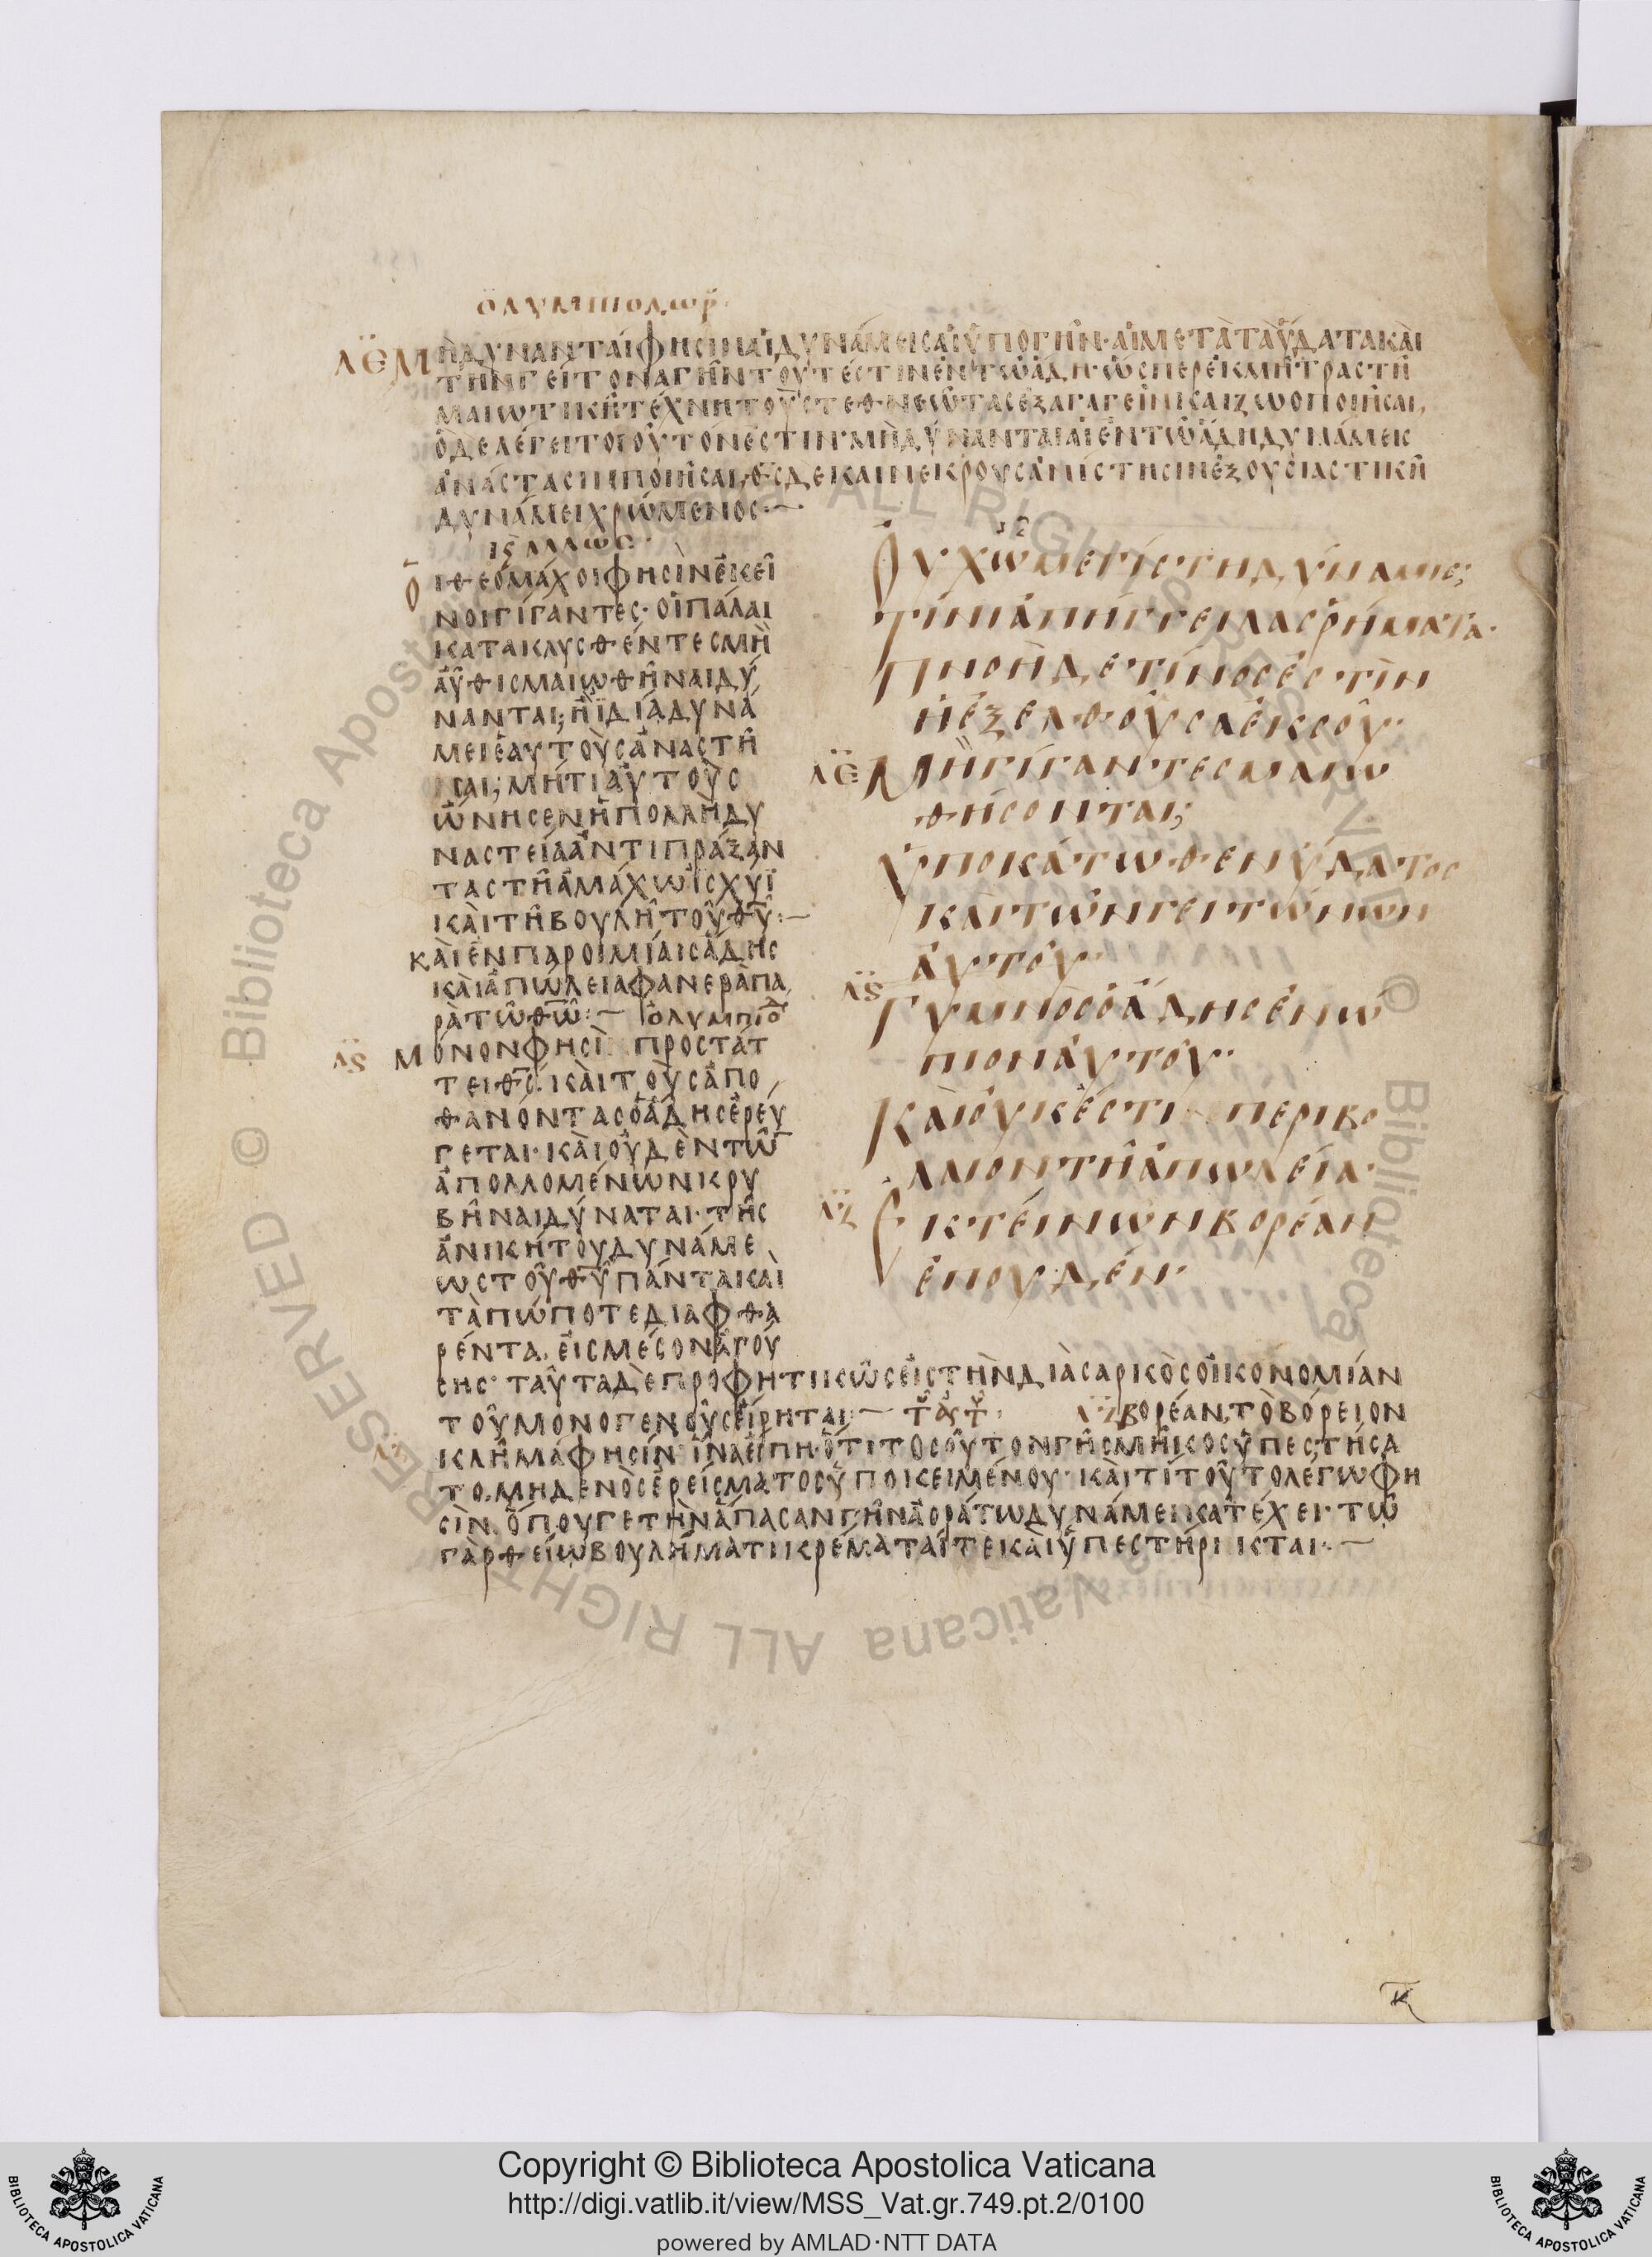 ὀλυμπιοδωρ
λε Μὴ δύνανται φησὶν αἱ δυνάμεις αἱ ὑπὸ γῆν· αἱ μετὰ τὰ ὕδατα καὶ
τὴν γείτονα γῆν τουτέστιν ἐν τῶ ἅδη· ὥσπερ ἐκ μήτρας τῆ
μαιωτικῆ τέχνη τοὺς τεθνεῶτας ἐξαγαγεῖν καὶ ζωοποιῆσαι,
ὃ δὲ λέγει τοιοῦτόν ἐστιν· μὴ δύνανται αἱ ἐν τῶ ἅδη δυνάμεις
ἀνάστασιν ποιῆσαι, ὁ θς δὲ καὶ νεκροὺς ἀνίστησιν ἐξουσιαστικῆ
δυνάμει χρώμενος·—
ἄλλως
Οἱ θεομάχοι φησὶν ἐκεῖ
νοι γίγαντες· οἱ πάλαι
κατακλυσθέντες μὴ
αὖθις μαιωθῆναι δύ
νανται; ἢ ἰδία δυνά
μει ἑαυτοὺς ἀναστῆ
σαι; μή τι αὐτοὺς
ὤνησεν ἡ πολλὴ δυ
ναστεία ἀντιπράξαν
τας τῆ ἀμάχω ἰσχύϊ
καὶ τῆ βουλῆ τοῦ θυ:—
καὶ ἐν παροιμίαις ἅδης
καὶ ἀπώλεια φανερὰ πα
ρὰ τῶ θω:— ὀλυμπιοδ
λς Μόνον φησὶ προστάτ
τει θς· καὶ τοὺς ἀπο
θανόντας ὁ ἅδης ἐρεύ
γεται· καὶ οὐδὲν τῶ
ἀπολλομένων κρυ
βῆναι δύναται· τῆς
ἀνικήτου δυνάμε
ως τοῦ θυ πάντα καὶ
τὰ πώποτε διαφθα
ρέντα, εἰς μέσον ἀγού
σης· ταῦτα δὲ προφητικῶς εἰς τὴν διὰ σαρκὸς οἰκονομίαν
τοῦ μονογενοῦς εἴρηται:— τοῦ αυτοῦ· λζ βορέαν, τὸ βόρειον
κλῆμα φησίν· ἵνα εἴπη· ὅτι τοσοῦτον γῆς μῆκος ὑπεστήσα
το, μηδενὸς ἐρείσματος ὑποκειμένου· καὶ τί τοῦτο λέγω φη
σὶν, ὅπου γε τὴν ἅπασαν γῆν ἀοράτω δυνάμει κατέχει· τῶ
γὰρ θείω βουλήματι κρέματαί τε καὶ ὑπεστήρικται·—
Οὐχ ὧ μεγίστη δύναμις;
Τίνι ἀπήγγειλας ῥήματα·
Πνοὴ δὲ τίνος ἐστὶν
ἡ ἐξελθοῦσα ἐκ σοῦ·
λε Μὴ γίγαντες μαιω
θήσονται;
Ὑποκάτωθεν ὕδατος
καὶ τῶν γειτώνων
αὐτοῦ·
λς Γυμνὸς ὁ ἅδης ἐνώ
πιον αὐτοῦ·
Καὶ οὐκ ἔστι περιβό
λαιον τῆ ἀπωλεία·
λζ Ἐκτείνων βορέαν
ἐπ' οὐδέν·
Copyright © Biblioteca Apostolica Vaticana
http://digi.vatlib.it/view/MSS_Vat.gr.749.pt.2/0100
powered by AMLAD·NTT DATA